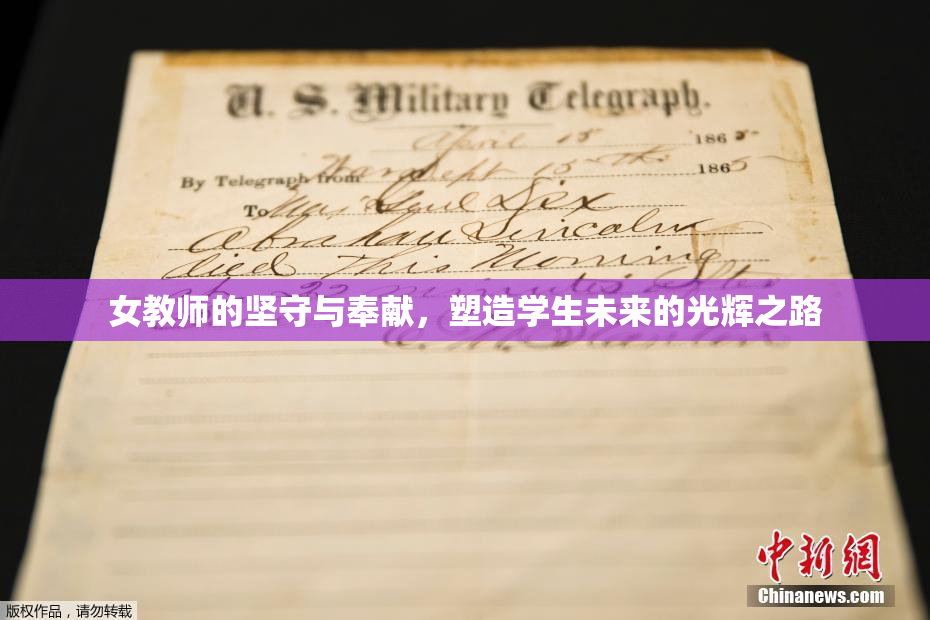 U. S. Military Telegraph.
April 15 1865
By Telegraph from War Dept 15th 1865
To Maj Genl Dix
Abraham Lincoln
died This Morning
22 minutes after
女教师的坚守与奉献，塑造学生未来的光辉之路
E. M. Stanton
中新网
Chinanews.com
版权作品，请勿转载